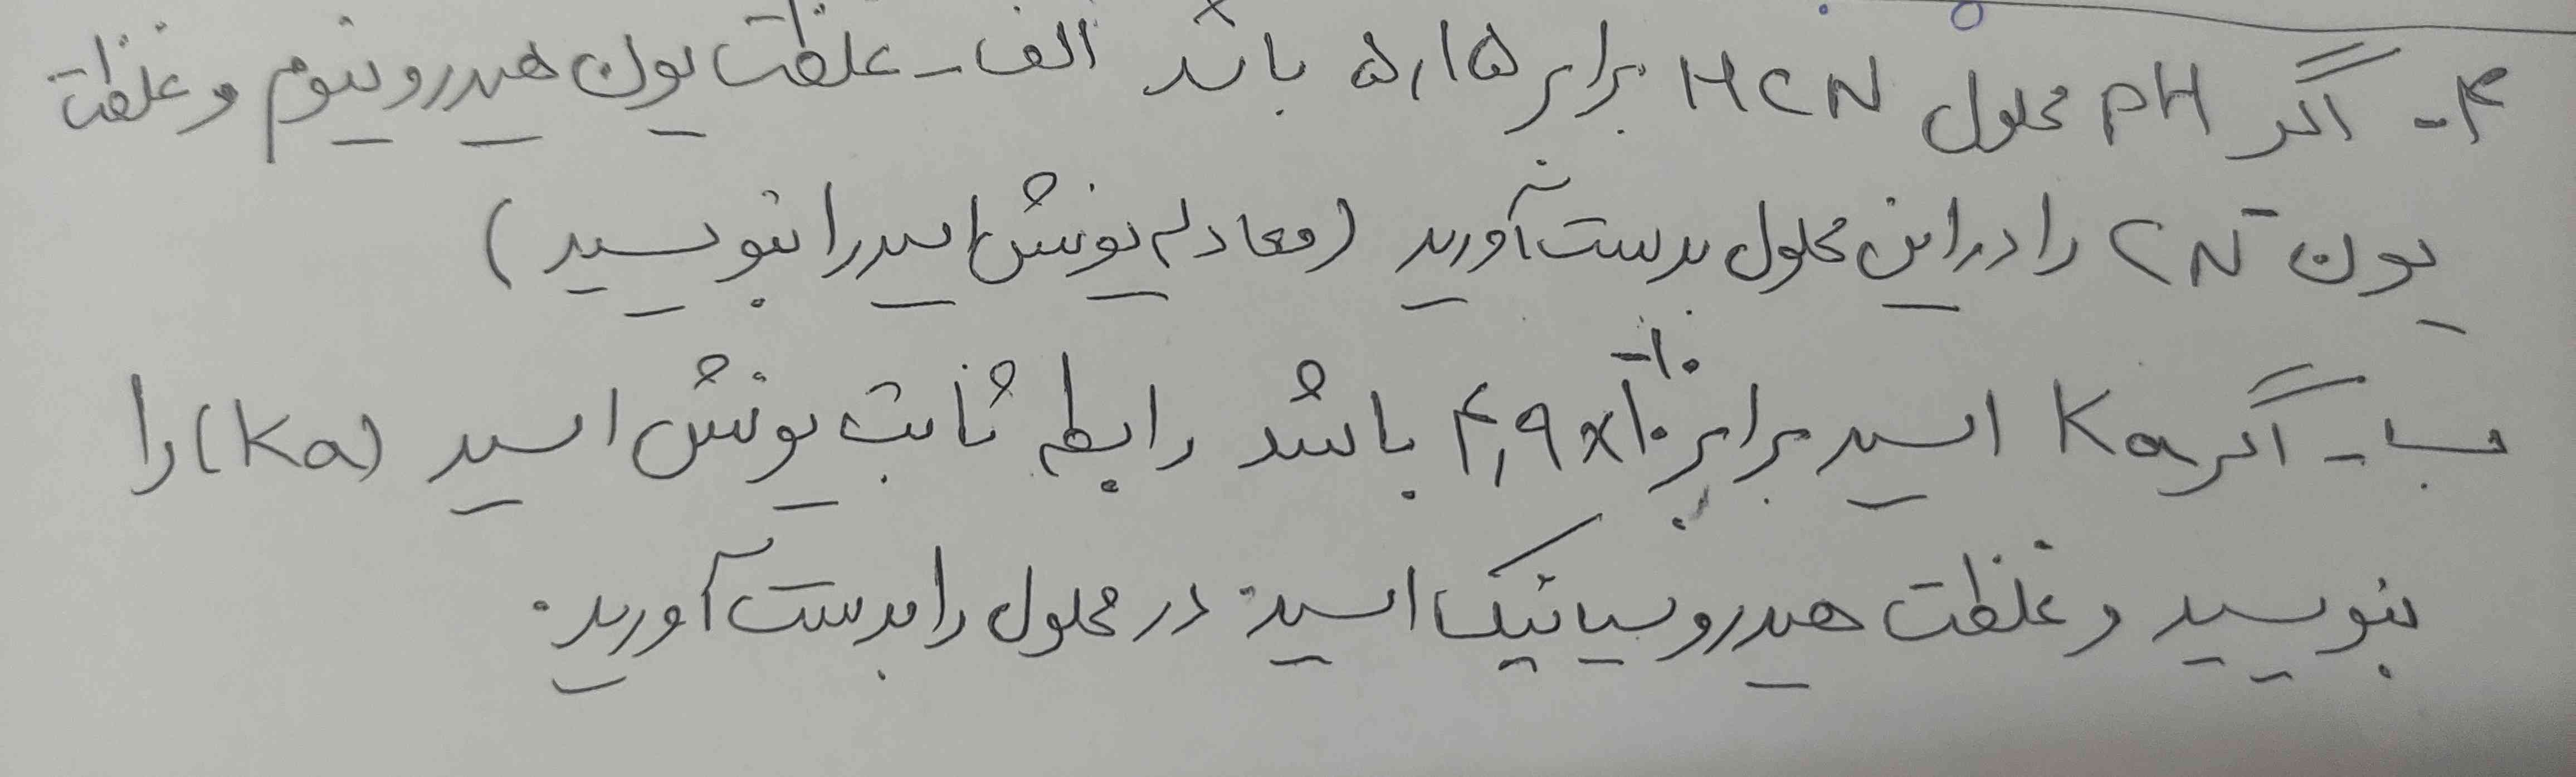 ۴- اگر PH محلول HCN برابر ۵,۱۵ باشد الف- غلظت یون هیدرونیوم و غلظت
یون CN⁻ را در این محلول بدست آورید (معادله یونش اسید را بنویسید)
ب- اگر Ka اسید برابر ۴,۹×۱۰⁻¹⁰ باشد رابطه ثابت یونش اسید (Ka) را
بنویسید و غلظت هیدروسیانیک اسید در محلول را بدست آورید.